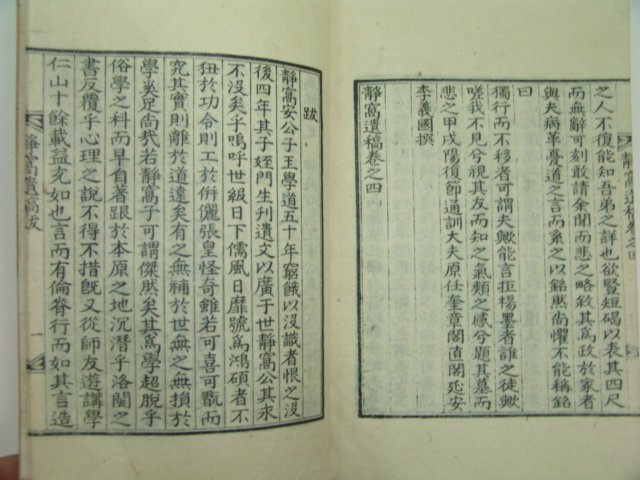 之人不復能知吾弟之詳也欲豎短碣以表其四尺
而無辭可刻敢請余聞而悲之略敘其爲政於家者
與夫病革疊道之言而系之以銘然尚懼不能稱銘
曰
獨行而不移者可謂夫歟能言拒楊墨者誰之徒歟
嗟我不見兮視其友而知之氣類之感兮題其墓而
悲之甲戌陽復節通訓大夫原任奎章閣直閣延安
李義國撰
靜窩遺稿卷之四
靜窩遺稿卷之四
跋
靜窩安公子玉學道五十年窮餓以沒識者恨之沒
後四年其子姪門生刊遺文以廣于世靜窩公其永
不沒矣乎嗚呼世級日下儒風日靡號爲鴻碩者不
狃於功令則工於倂儷張皇怪奇雖若可喜可翫而
究其實則離於道遠矣有之無補於世無之無損於
學奚足尚哉若靜窩子可謂傑然矣其爲學超脫乎
俗學之科而早自著跟於本原之地沉潛乎洛閩之
書反覆乎心理之說不得不措旣又從師友遊講學
仁山十餘載益充如也言而有倫脊行而如其言造
靜窩遺稿跋
一